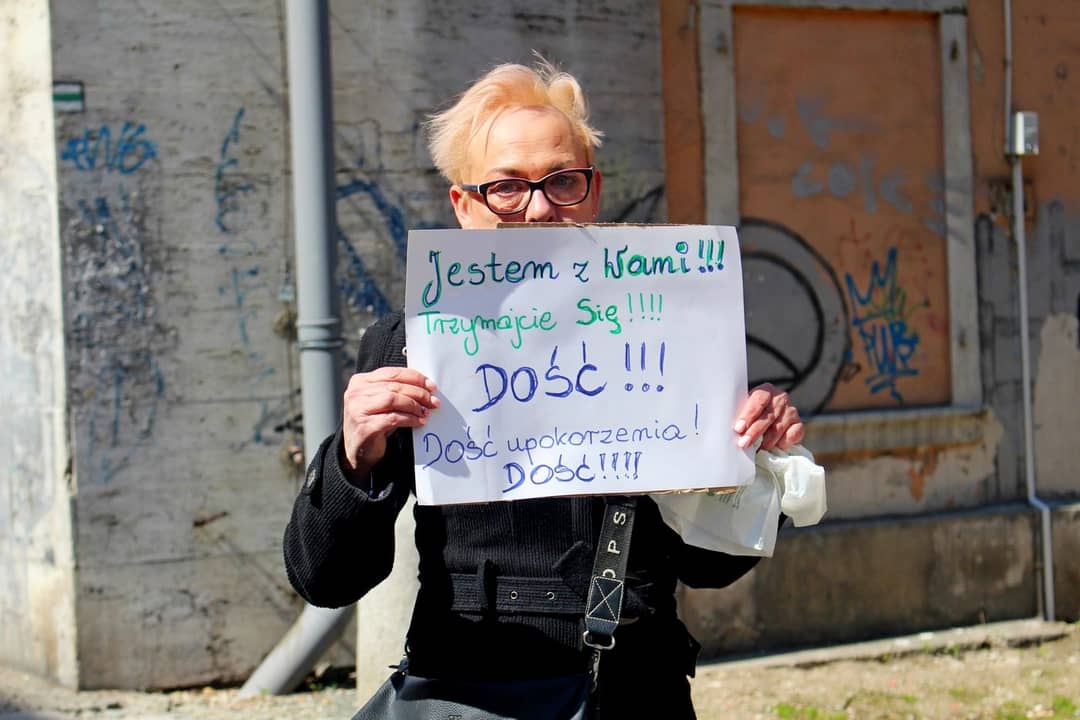 Jestem z Wami!!!
Trzymajcie Się!!!!
DOŚĆ!!!
Dość upokorzenia!
DOŚĆ!!!!
OPS